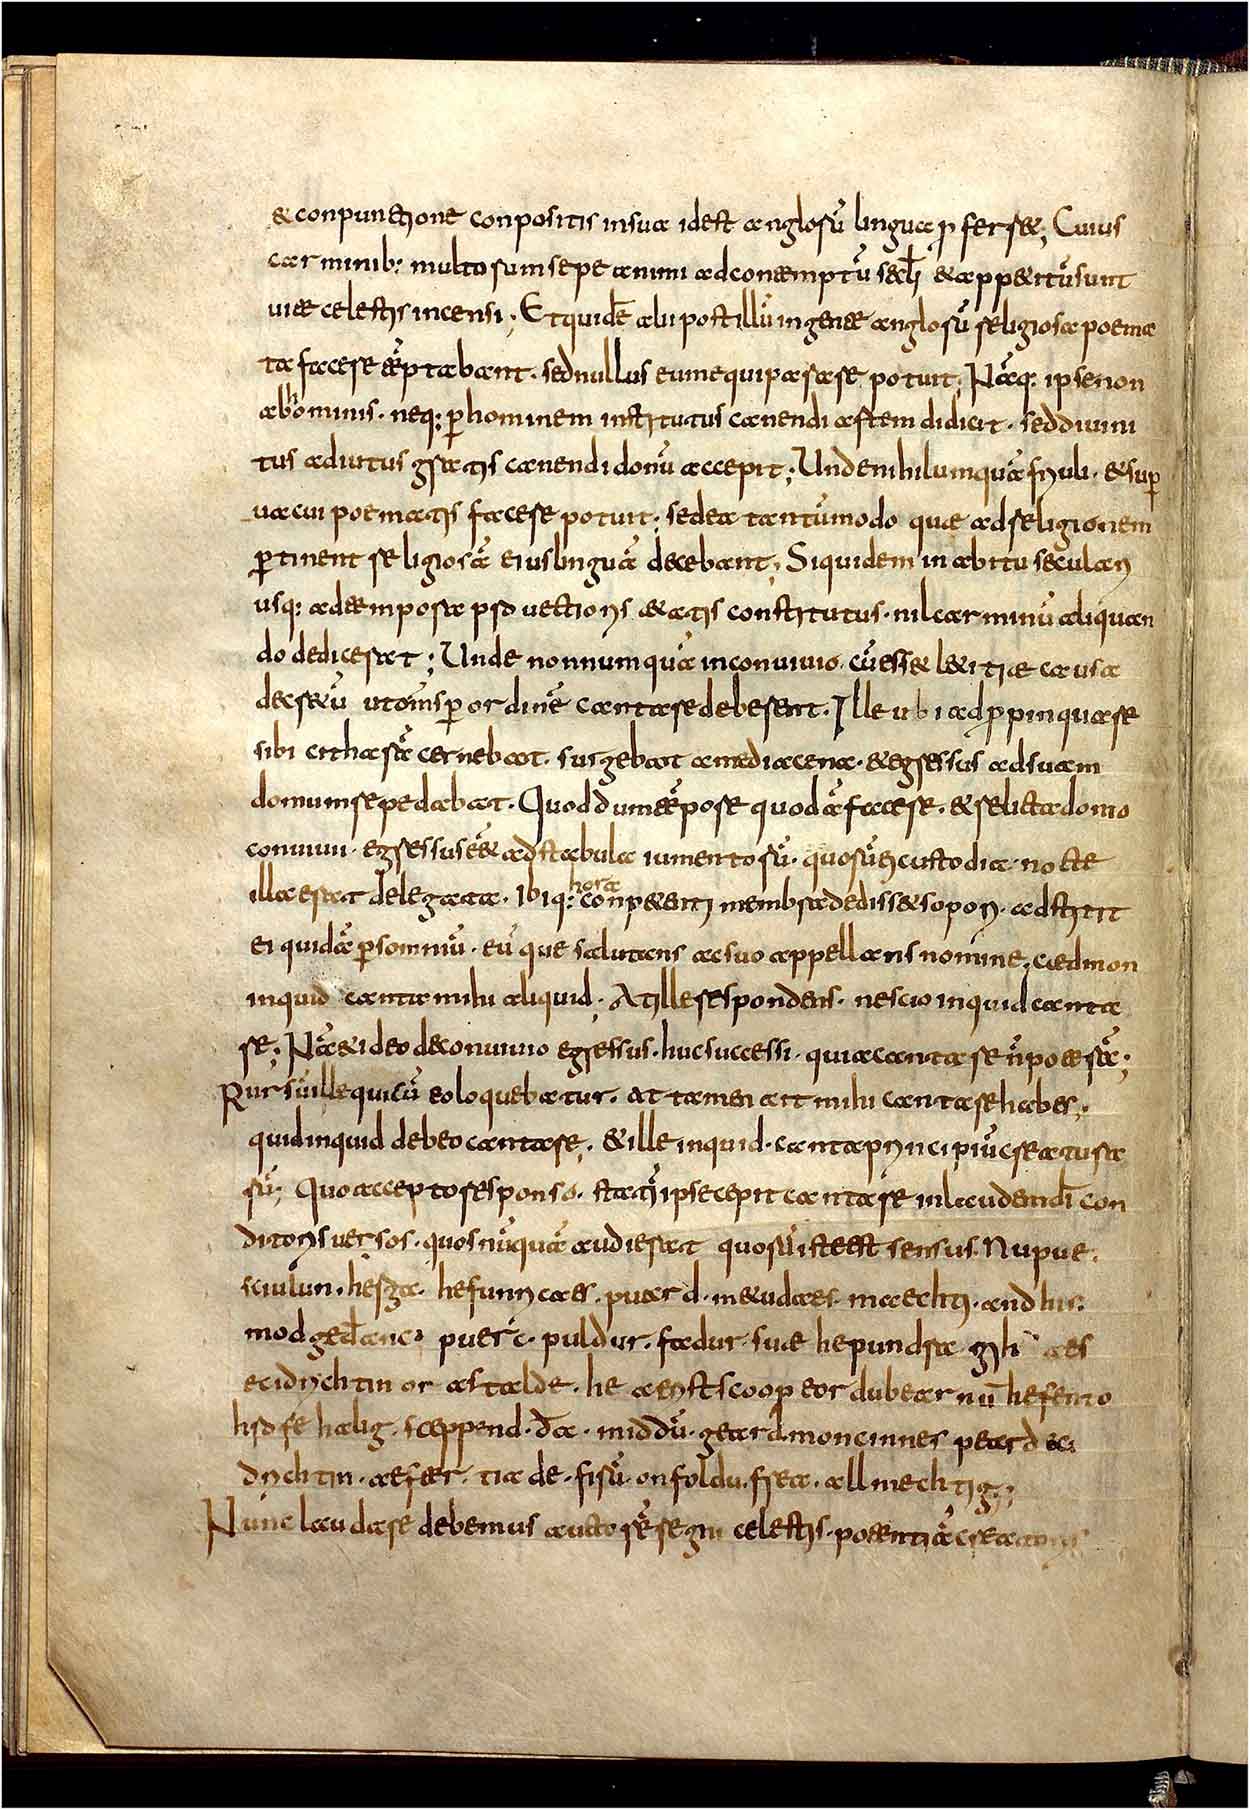 & conpunctione conpositis in sua id est anglorū lingua ꝓferret; Cuius
carminib: multorum sepe animi ad contemptū sęcłi & appetitū sunt
uitae celestis incensi; Et quidē alii post illū in gente anglorū religiosa poema
ta facere tēptabant. sed nullus eum equiparare potuit; Nāq: ipse non
ab hominis. neq: ꝑ hominem institutus canendi artem didicit. sed diuini
tus adiutus gratis canendi donū accepit; Unde nihil umquā friuoli. & suꝑ
uacui poematis facere potuit. sed ea tantūmodo quae ad religionem
ꝑtinent religiosā eius linguā decebant; Siquidem in abitu seculari
usq: ad tempora prouectioris aetatis constitutus. nil carminū aliquan
do dedicerat; Unde nonnumquā in conuiuio. cū esset laetitiae causa
decretū ut om̄s ꝑ ordinē cantare deberent. Ille ubi adꝓpinquare
sibi citharā cernebat. surgebat a media cena. & egressus ad suam
domum repedabat. Quod dum tēpore quodā faceret. & relicta domo
conuiuii. egressus eēt ad stabula iumentorū. quorū ei custodia nocte
illa erat delegata. Ibiq: hora conpetenti membra dedisset sopori. adstitit
ei quidā ꝑ somniū. eūque salutans ac suo appellans nomine. caedmon
inquid canta mihi aliquid. At ille respondens. nescio inquid canta
re; Nā & ideo de conuiuio egressus. huc successi. quia cantare n̄ poterā;
Rursū ille qui cū eo loquebatur. at tamen ait mihi cantare habes.
quid inquid debeo cantare. & ille inquid. canta principiū creatura
rū; Quo accepto responso. statī ipse cepit cantare in laudem dī con
ditoris uersos. quos nūquā audierat quorū iste est sensus. Nu pue.
sciulun. herga. hefunricaes. puard. metudaes. maecti. and his.
modgedanc. puerc. puldur. fadur. suae he pundra gihuaes
eci drichtin or astalde. he aerist scoop eordu bearnū hefen to
hrofe halig. sceppend. da. middū. geard moncinnes peard eci
drichtin. aefter. tiade. firū. on foldu. frea. allmechtig;
Nunc laudare debemus auctorē regni celestis. potentiā creatoris